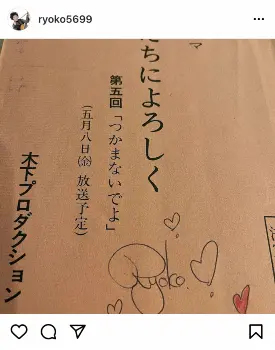 ryoko5699
マ
たちによろしく
第五回「つかまないでよ」
(五月八日(金)放送予定)
木下プロダクション
Ryoko.